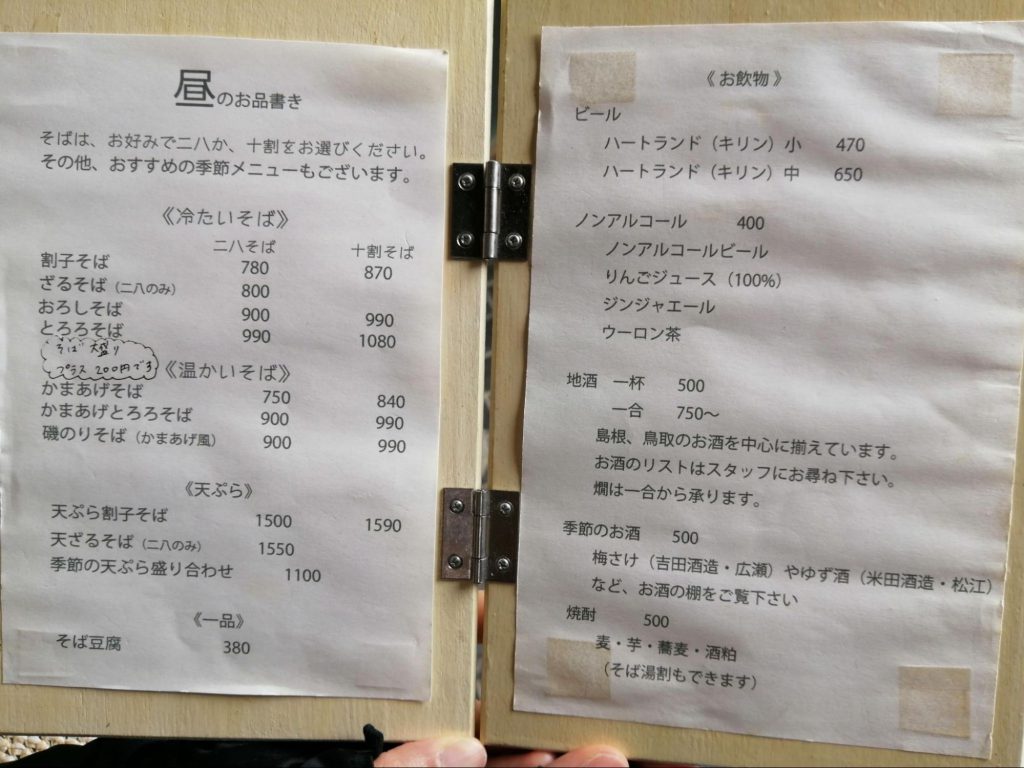 昼のお品書き
そばは、お好みで二八か、十割をお選びください。
その他、おすすめの季節メニューもございます。
《冷たいそば》
二八そば 十割そば
割子そば 780 870
ざるそば（二八のみ） 800
おろしそば 900 990
とろろそば 990 1080
そば大盛り
プラス200円です
《温かいそば》
かまあげそば 750 840
かまあげとろろそば 900 990
磯のりそば（かまあげ風） 900 990
《天ぷら》
天ぷら割子そば 1500 1590
天ざるそば（二八のみ） 1550
季節の天ぷら盛り合わせ 1100
《一品》
そば豆腐 380
《お飲物》
ビール
ハートランド（キリン）小 470
ハートランド（キリン）中 650
ノンアルコール 400
ノンアルコールビール
りんごジュース（100%）
ジンジャエール
ウーロン茶
地酒 一杯 500
一合 750～
島根、鳥取のお酒を中心に揃えています。
お酒のリストはスタッフにお尋ね下さい。
燗は一合から承ります。
季節のお酒 500
梅さけ（吉田酒造・広瀬）やゆず酒（米田酒造・松江）
など、お酒の棚をご覧下さい
焼酎 500
麦・芋・蕎麦・酒粕
（そば湯割もできます）